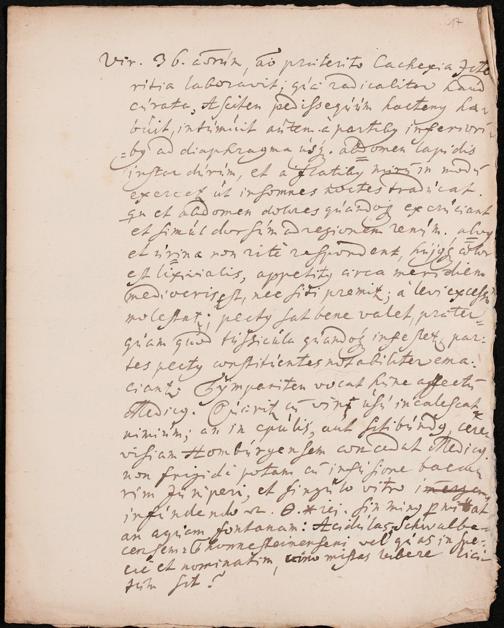 17
Vir. 36. annorum, anno praeterito Cachexia Icte
ritia laboravit; qua radicaliter haud
curata, Asciten pedissequum hactenq ha
buit, intumuit autem a partibq inferiori
=bq ad diaphragma usq. abdomen lapidis
instar durum, et a flatibq in modum
exercet ut insomnes noctes traducat.
et abdomen dolores quandoq excruciant
et simul dorsum ad regionem renum. alvq
et urina non ritè respondent, hujus color
est lixivialis, appetitq circa meridiem
mediocris est, nec sitis premit; à levi excessu
molestat; pectq sat bene valet, praeter
quam quod tussicula quandoq infestet, par
tes pectq constituentes notabiliter ema
ciant. Tympaniten vocat hinc affectum
Medicq. Quaerit cum vini usu incalescat
nimium; an in epulis, aut sitibundq, cere
visiam Homburgensem concedat Medicq,
non frigidi potum cum infusione bacca
rum Juniperi, et singulo vitro
infundendo ... sin minq permittat
an aquam fontanam: Acidulas Schwalba
censem: Thonnesteinensem vel quas in spe=
cie et nominatim, vino mistas bibere lici
tum sit?